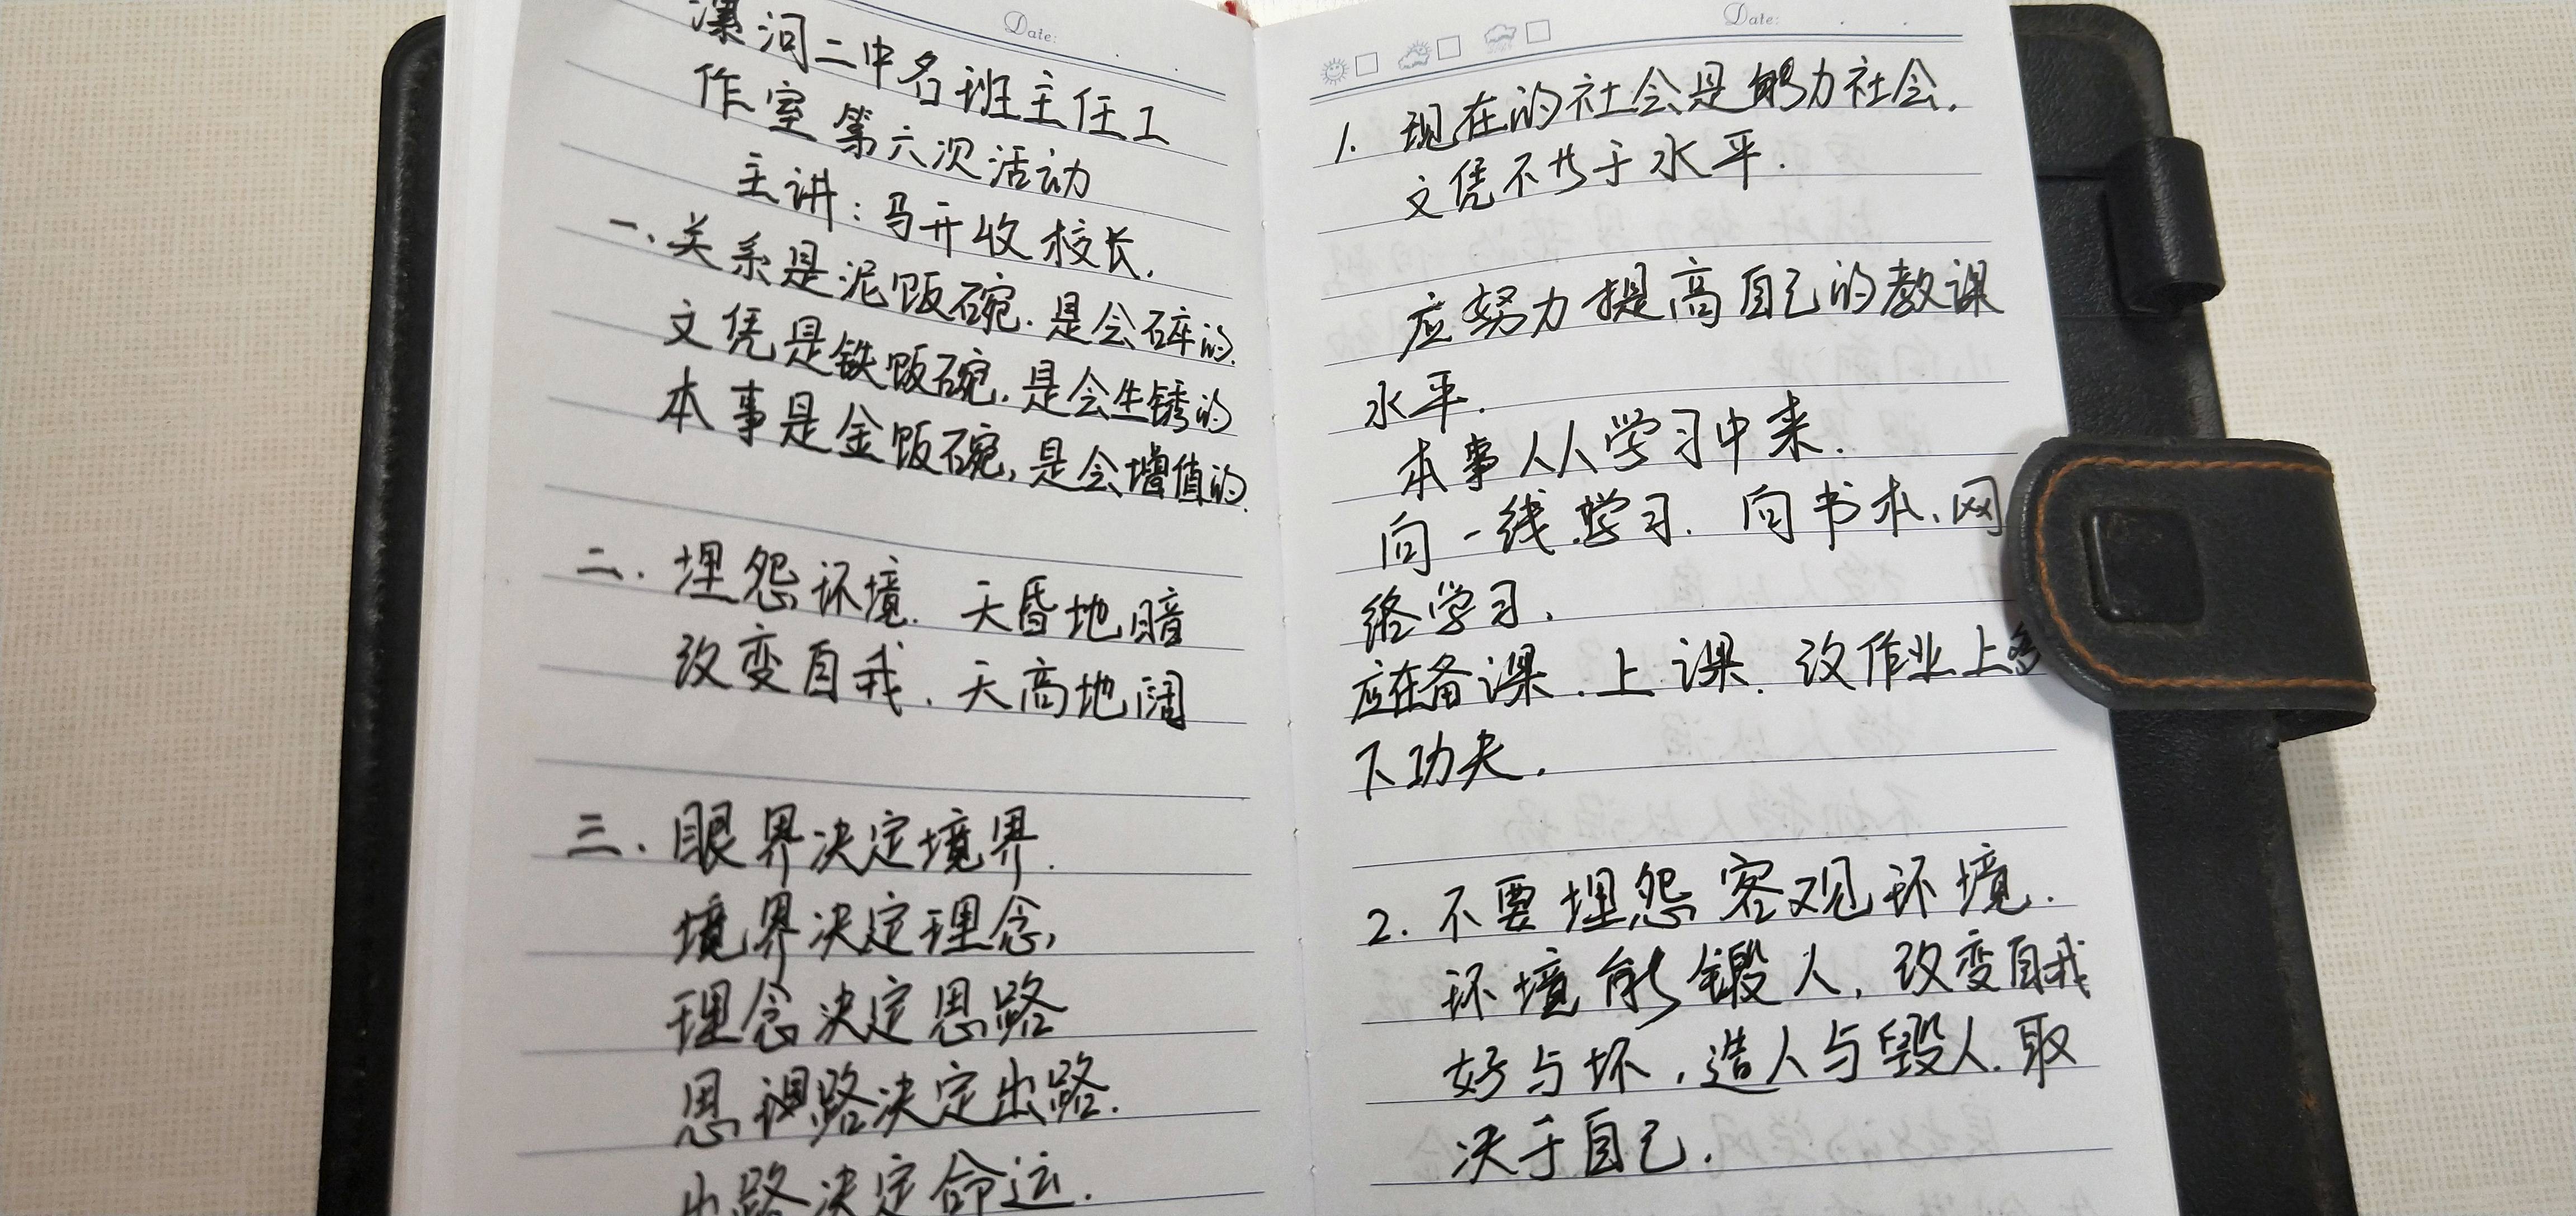 Date:
漯河二中名班主任工
作室第六次活动
主讲:马开收校长.
一、关系是泥饭碗.是会碎的.
文凭是铁饭碗.是会生锈的
本事是金饭碗,是会增值的.
二.埋怨环境.天昏地暗
改变自我.天高地阔
三.眼界决定境界.
境界决定理念,
理念决定思路
思路决定出路.
出路决定命运.
Date:
1.现在的社会是能力社会.
文凭不等于水平.
应努力提高自己的教课
水平.
本事从学习中来.
向一线学习.向书本、网
络学习.
应在备课.上课.改作业上多
下功夫.
2.不要埋怨客观环境.
环境能锻人,改变自我
好与坏,造人与毁人.取
决于自己.